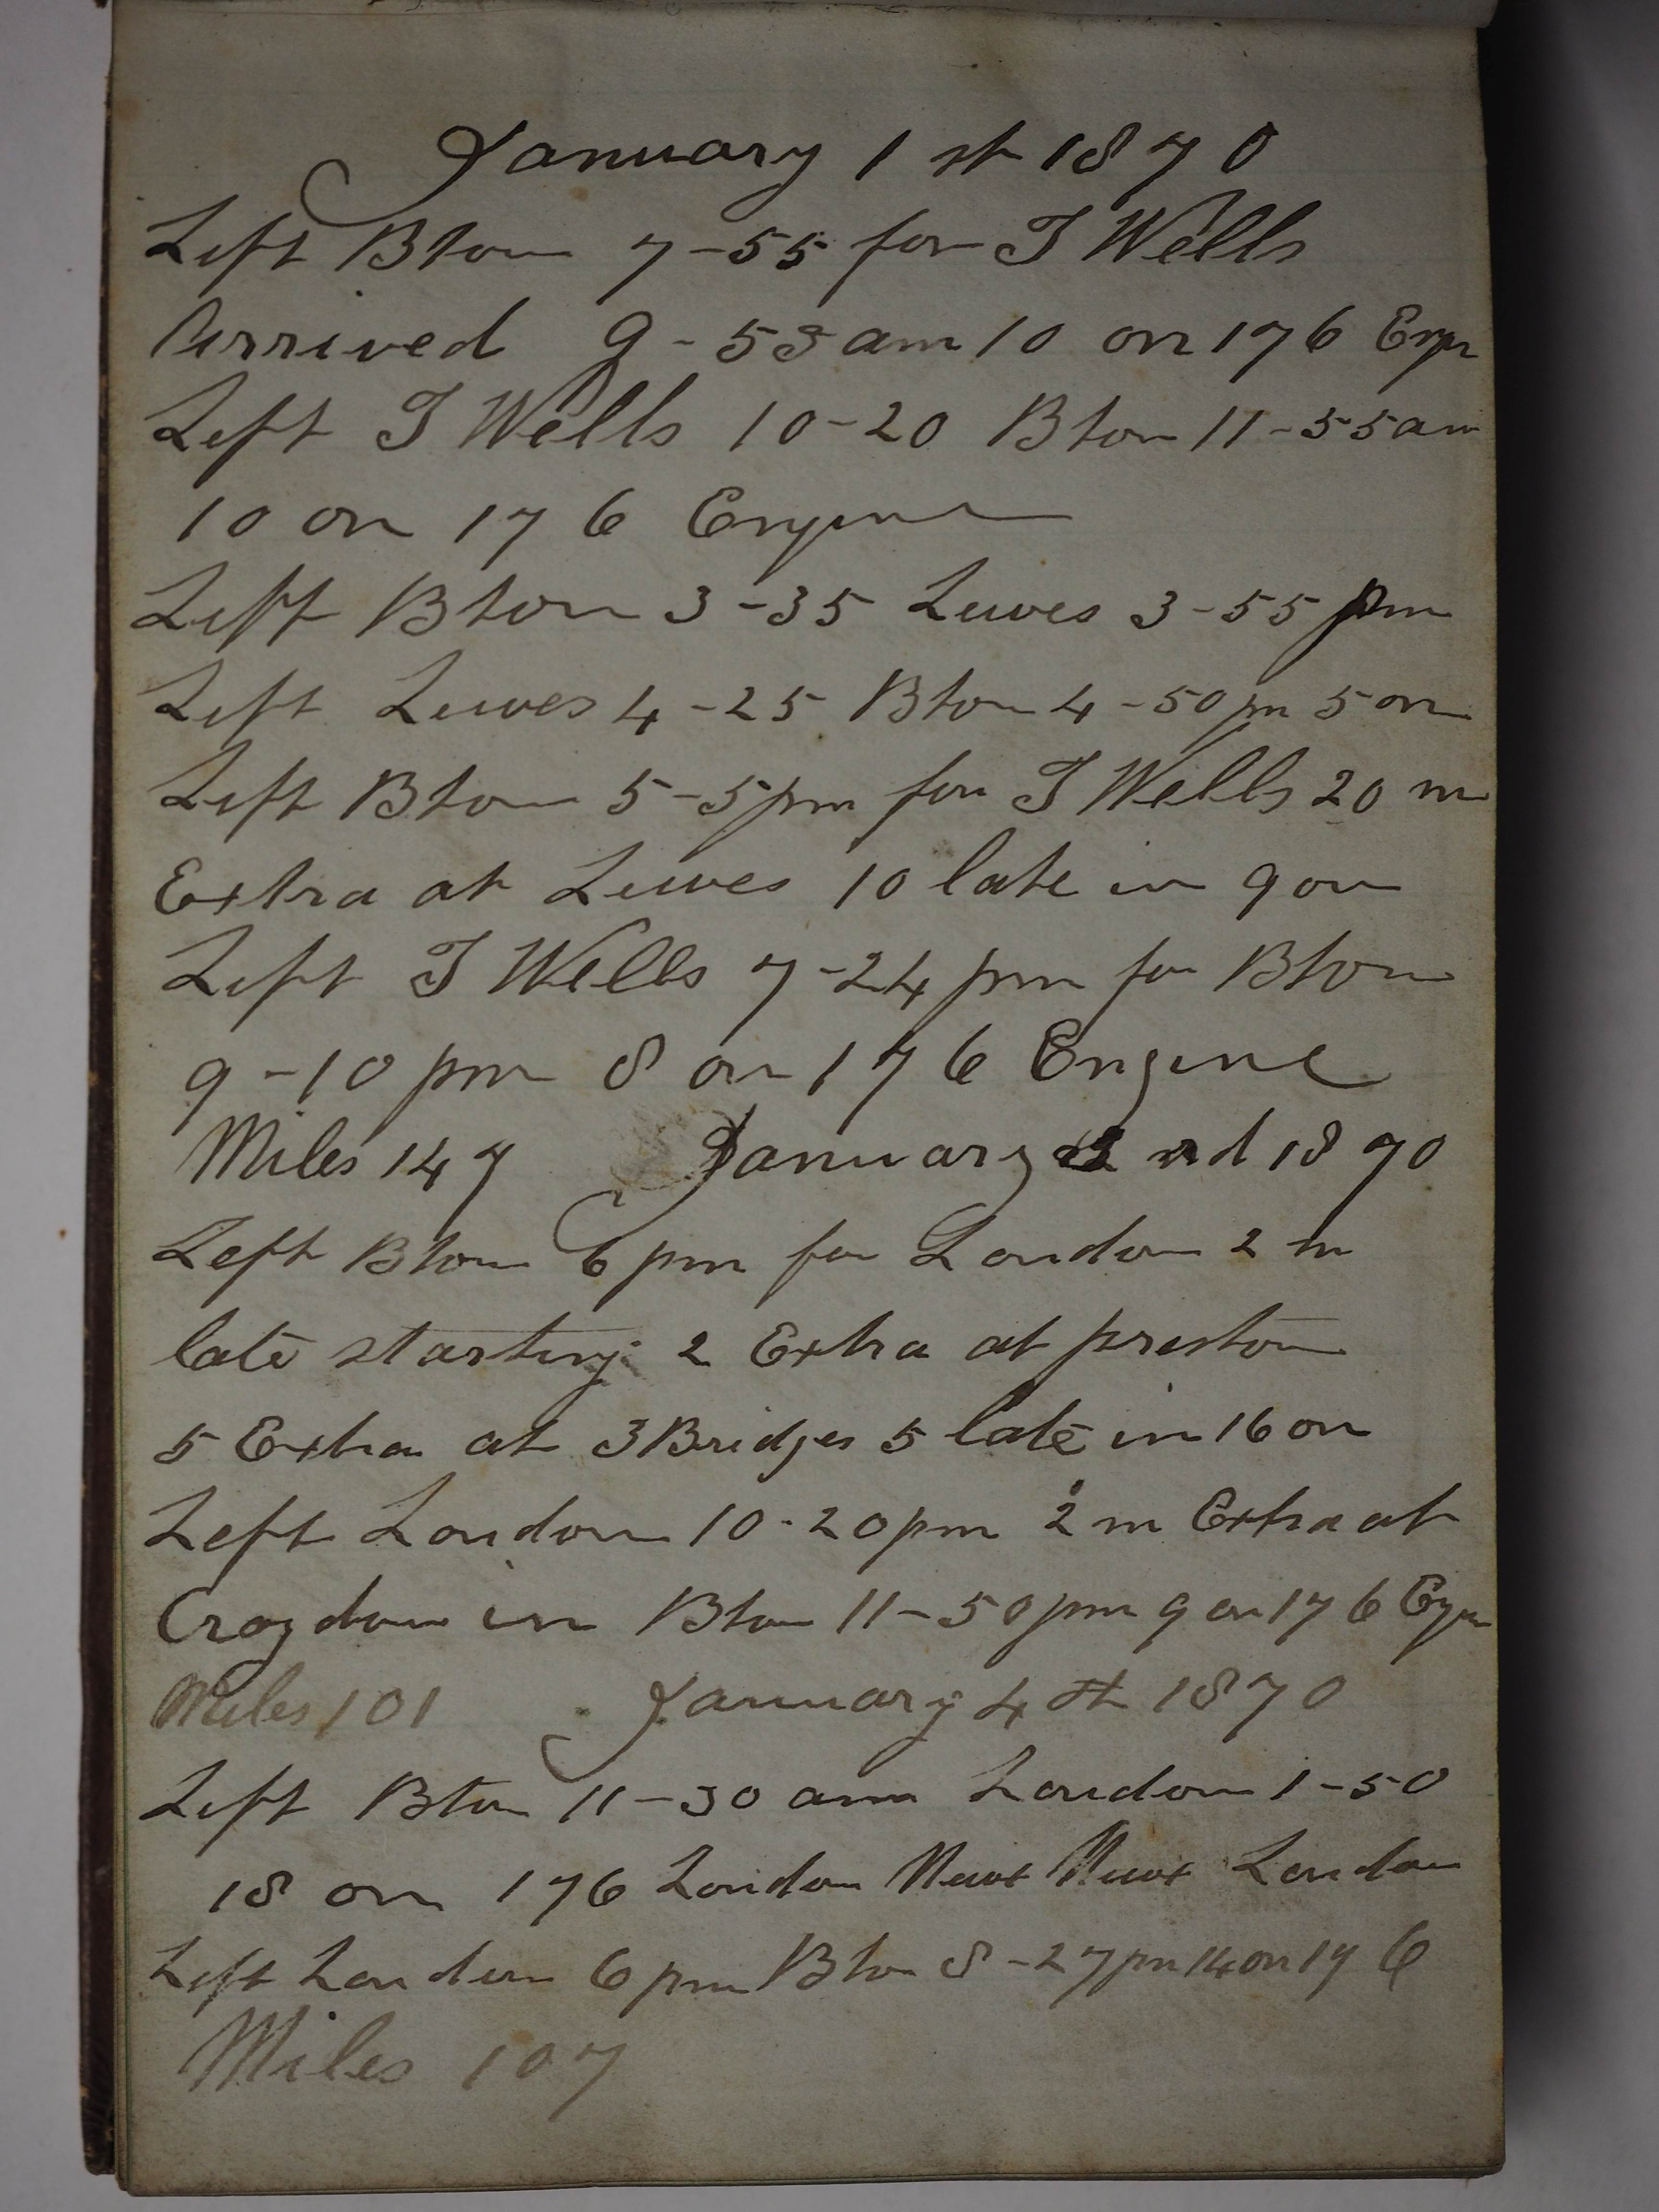 January 1 st 1870
Left Bton 7-55 for T Wells
Arrived 9-55 am 10 on 176 Engn
Left T Wells 10-20 Bton 11-55 am
10 on 176 Engine
Left Bton 3-35 Lewes 3-55 pm
Left Lewes 4-25 Bton 4-50 pm 5 on
Left Bton 5-5 pm for T Wells 20 m
Extra at Lewes 10 late in 9 on
Left T Wells 7-24 pm for Bton
9-10 pm 8 on 176 Engine
Miles 147 January 2 nd 1870
Left Bton 6 pm for London 2 m
late starting 2 Extra at preston
5 Extra at 3 Bridges 5 late in 16 on
Left London 10-20 pm 2 m Extra at
Croydon in Bton 11-50 pm 9 on 176 Egn
Miles 101 January 4 th 1870
Left Bton 11-30 am London 1-50
18 on 176 London London
Left London 6 pm Bton 8-27 pm 14 on 176
Miles 107